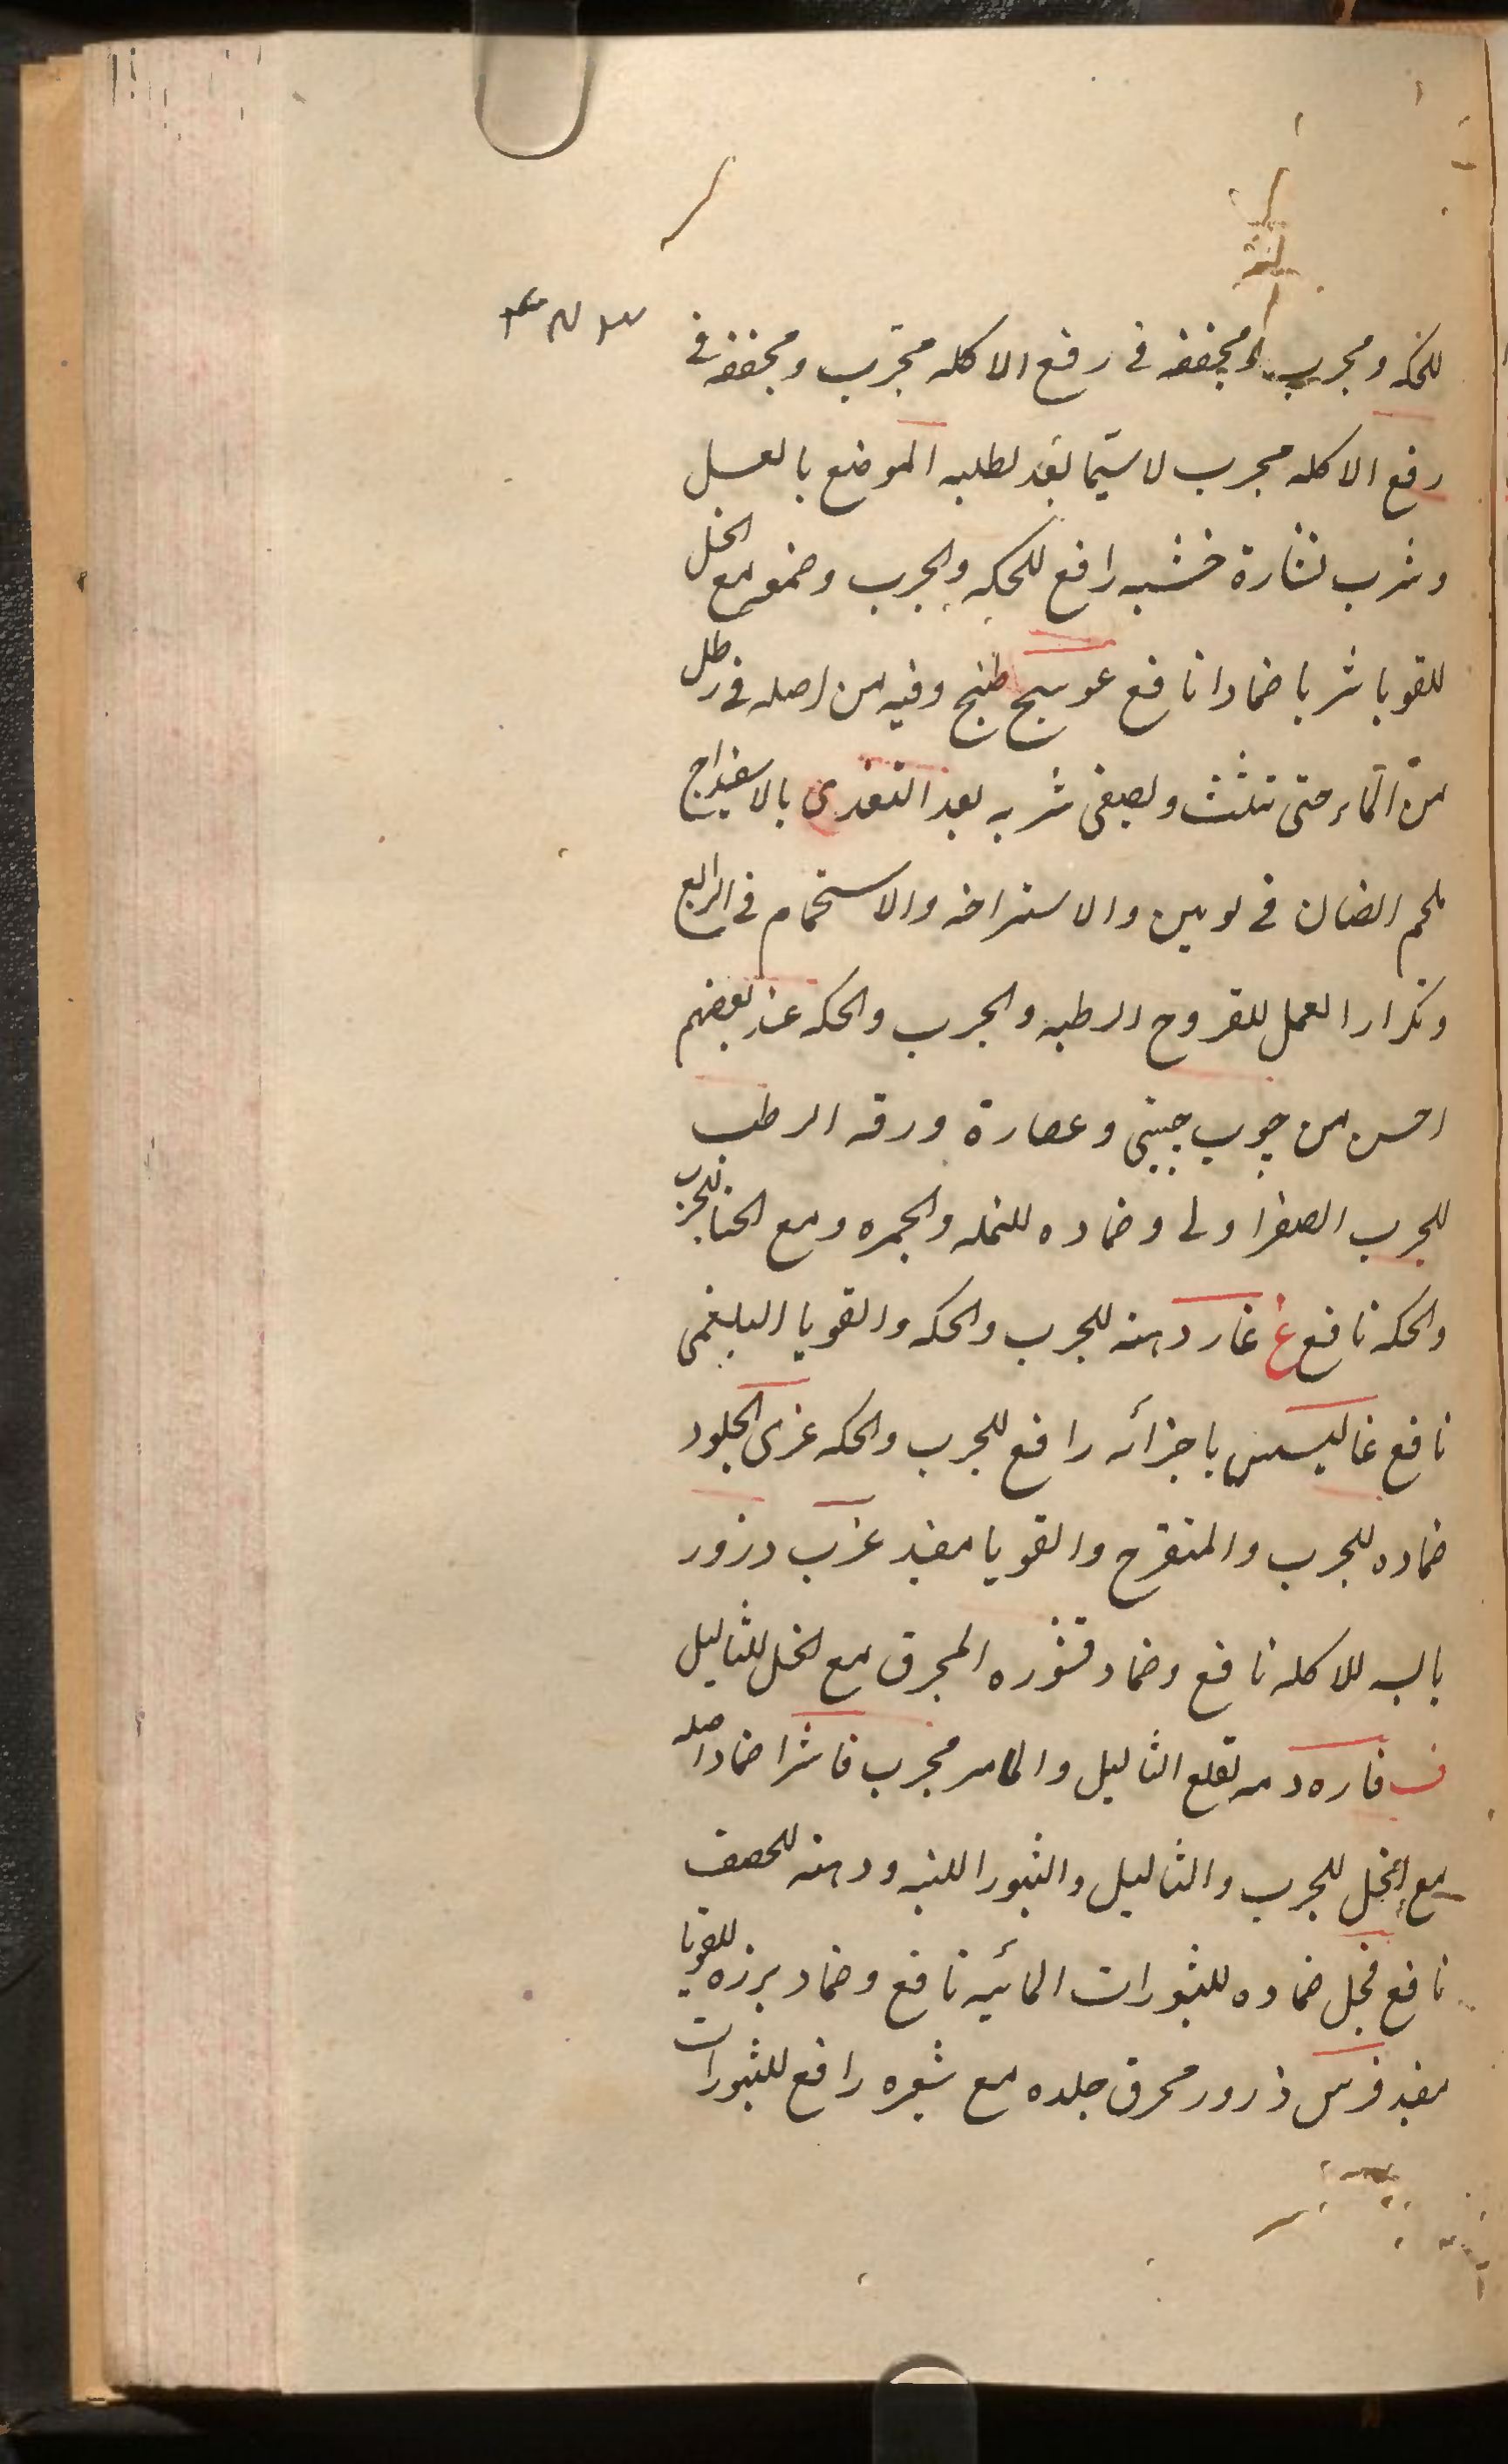 للحكه ومجرب ومجففه فى رفع الاكله مجرب ومجففه فى
رفع الاكله مجرب لاسيما بعد لطلبه الموضع بالعسل
وشرب نشارة خشبه رافع للحكه والجرب وصمغه مع الخل
للقوبا شربا ضمادا نافع عوسج طبخ وقيه من اصله فى رطل
من الماء حتى تثلث ويصفى شربه بعد التغذى بالاسفيداج
بلحم الضان فى يومين والاستراحه والاستحمام فى الرابع
وتكرار العمل للقروح الرطبه والجرب والحكه عند بعضهم
احسن من چوب چينى وعصارة ورقه الرطب
للجرب الصفراوى وضماده للنمله والجمره ومع الحنا للجرب
والحكه نافع غ غار دهنه للجرب والحكه والقوبا البلغمى
نافع غاليسس باجزائه رافع للجرب والحكه غرى الجلود
ضماده للجرب والمتقرح والقوبا مفيد غرب ذرور
يابسه للاكله نافع وضماد قشوره المحرق مع الخل للثاليل
ف فاره دمه لقلع الثاليل والمسامير مجرب فاشرا ضماد اصله
مع الخل للجرب والثاليل والبثور اللبنيه ودهنه للحصف
نافع فجل ضماده للبثورات المائيه نافع وضماد بزره للقوبا
مفيد فرس ذرور محرق جلده مع شعره رافع للبثورات